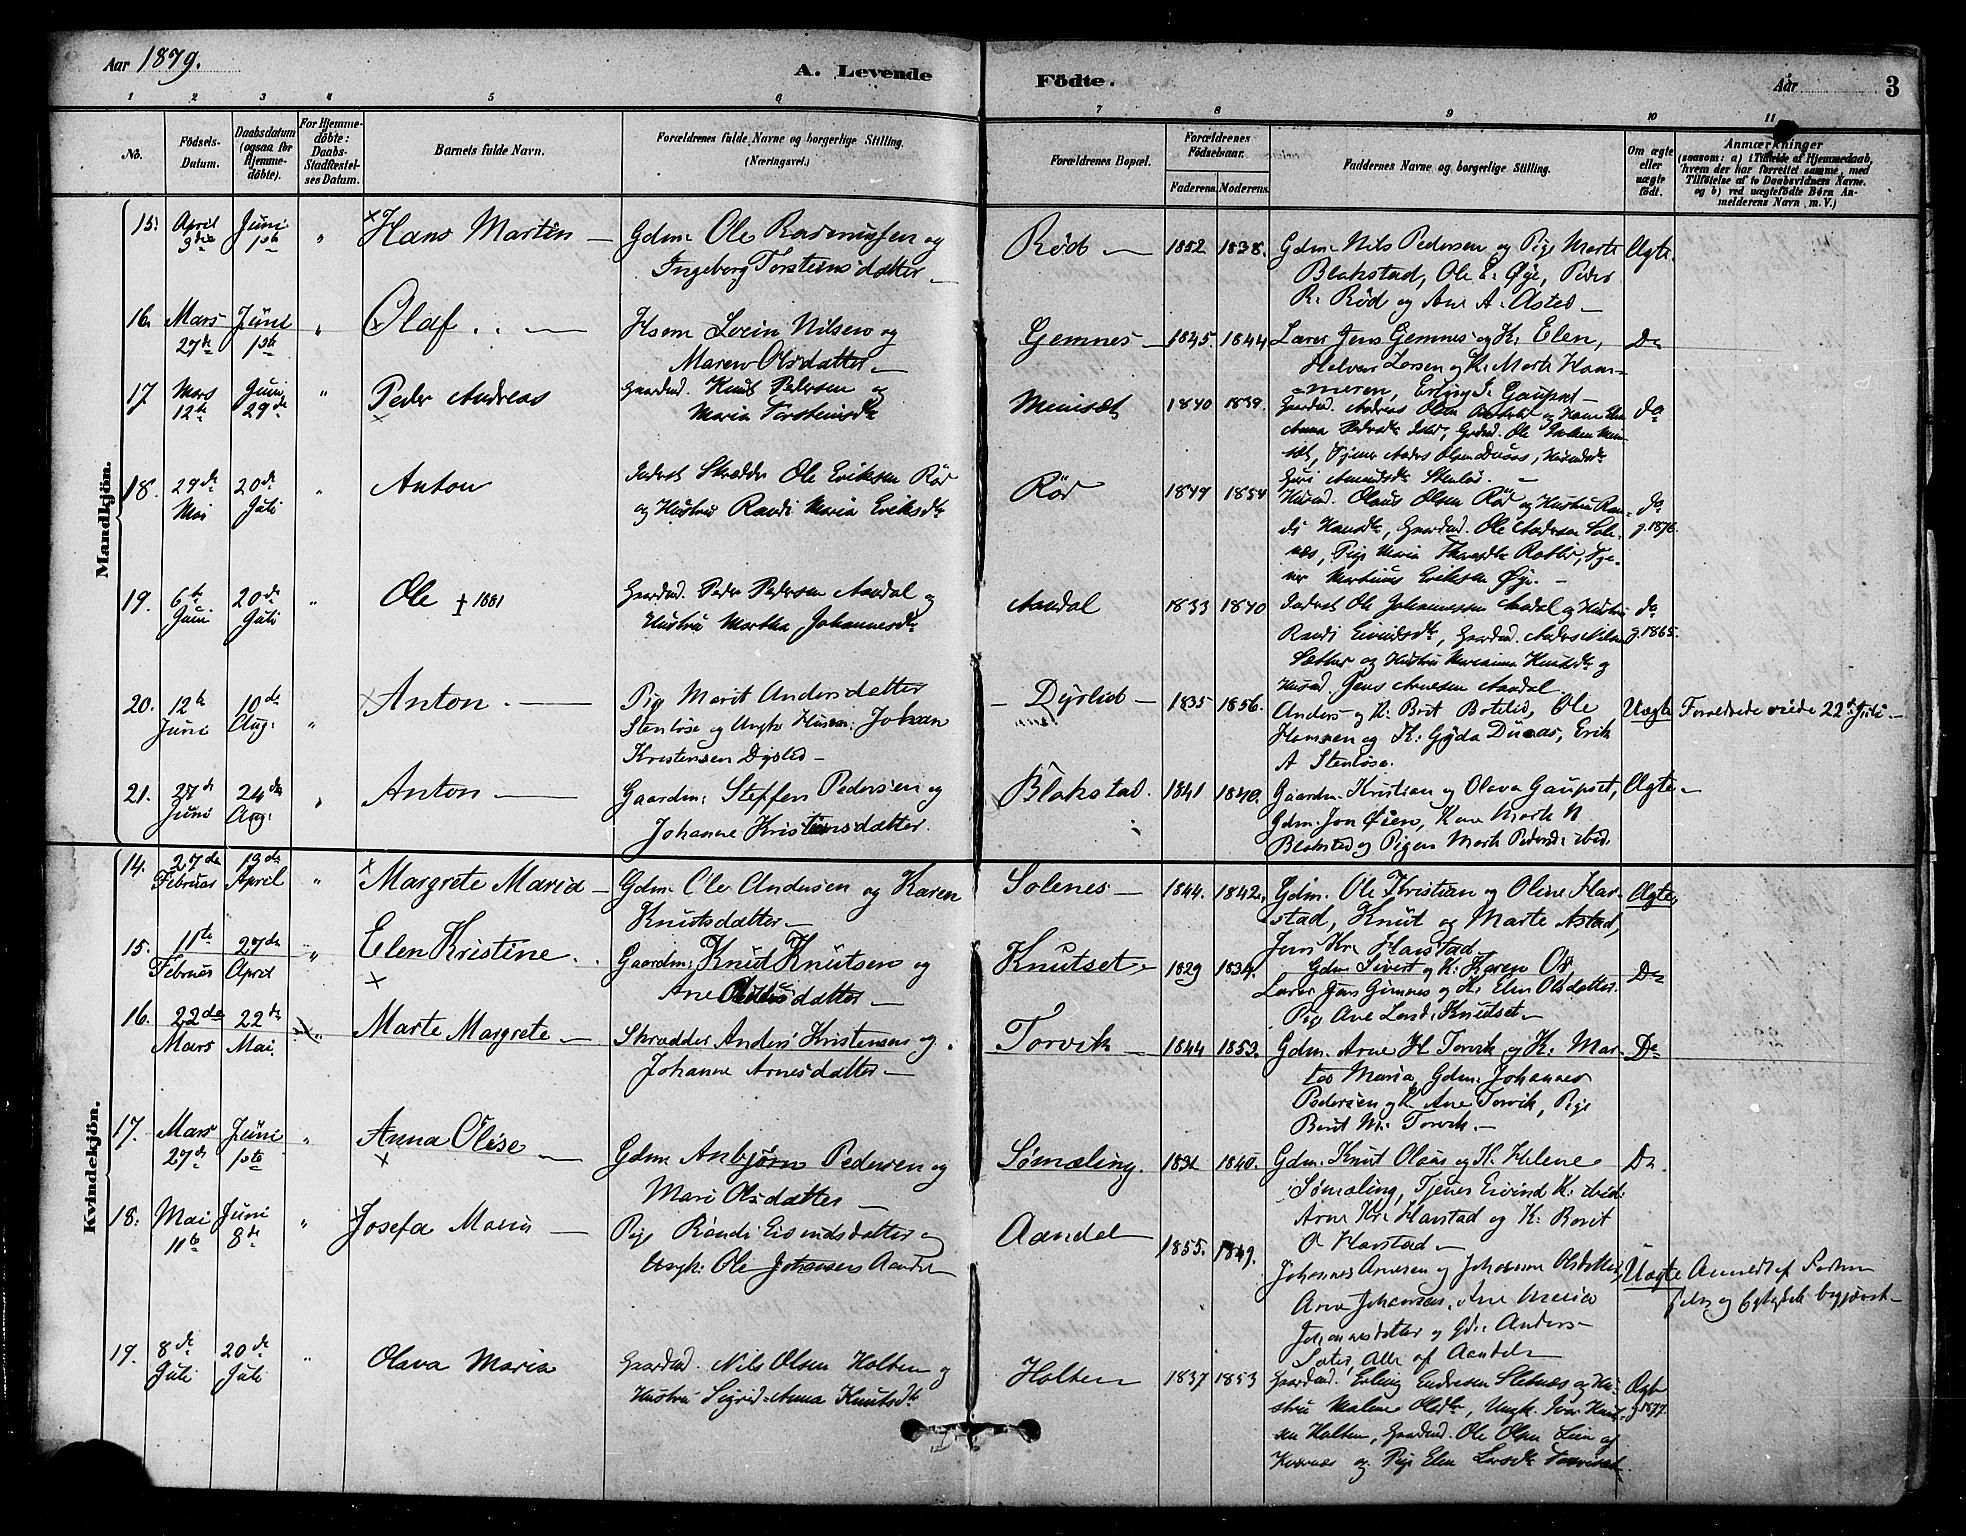 Aar 1879.
A. Levende
Födte.
Aar
3
1 2 3 4 5 6 7 8 9 10 11
No.
Födsels-Datum.
Daabsdatum (ogsaa for Hjemme-döbte).
For Hjemme-döbte: Daabs-Stadfæstelses Datum.
Barnets fulde Navn.
Forældrenes fulde Navne og borgerlige Stilling. (Næringsvei.)
Forældrenes Bopæl.
Forældrenes Födselsaar.
Faderens.
Moderens.
Faddernes Navne og borgerlige Stilling.
Om ægte eller uægte födt.
Anmærkninger
(saasom: a) i Tilfælde af Hjemmedaab,
hvem der har forrettet samme, med
Tilföielse af to Daabsvidners Navne,
og b) ved uægtefödte Börn An-
melderens Navn, m. V.)
Mandkjön.
15. April 9die Juni 1ste " Hans Martin — Gdm: Ole Rasmussen og
Ingeborg Torsteinsdatter —
Röd — 1852 1838. Gdm: Nils Pedersen og Pige Marte
Blakstad, Ole E. Øye, Peder
R. Röd og Ane A. Asted —
Ægte.
16. Mars 27de Juni 1ste " Olaf . . — Husm Svein Nilsen og
Maren Olsdatter —
Gemnes — 1845. 1844 Lærer Jens Gemnes og K. Elen,
Halvor Larsen og K. Marte Ham-
meren, Erling I. Gaupset —
Do
17 Mars 12te Juni 29de " Peder Andreas Gaardmd. Knut Pedersen og
Maria Torsteinsdtr
Meinsæt 1840 1839. Gaardmd. Andreas Olsen
do
18. 29de Mai 20de Juli " Anton Inderst Skrædder Ole Eriksen Röd
og Hustru Randi Maria Eriksdtr
Röd 1849 1854 Husmd. Olaus Olsen Röd og Hustru Ran-
di Hansdtr, Gaardmd. Ole Andersen Sole-
næs, Pige Maria
Martinus Eriksen Øye. —
do g. 1876.
19. 6te Juni 20de Juli " Ole † 1881 Gaardmd. Peder Pedersen Aandal og
Hustru Martha Johannesdtr
Aandal 1833 1840 Inderst Ole Johannessen Aandal og Hustru
Randi Eivindsdtr, Gaardmd. Anders Nilsen
Sætter og Hustru Marianna Knutsdtr og
Husmd. Jens Arnesen Aandal.
do g. 1865.
20. 12te Juni 10de Aug. " Anton. — Pige Marit Andersdatter
Stenløse og Ungk: Husm: Johan
Kristensen Dyrlid —
— Dyrlid — 1835 1856. Anders og K: Brit Botelid, Ole
Hansen og K: Gyda Duaas, Erik
A Stenløse.
Uægte Forældrede viede 22de Juli —
21. 27de Juni 24de Aug: " Anton — Gaardm: Steffen Pedersen og
Johanne Kristensdatter.
Blakstad. 1841 1840. Gaardm. Kristian og Olava Gaupset,
Gdm. Jon Øien, Kone Marte N
Blakstad og Pigen Marte Pedersd: ibid.
Ægte —
Kvindekjön.
14. 27de Februar 13de April " Margrete Maria — Gdm: Ole Andersen og Karen
Knutsdatter —
Solenes — 1844. 1842. Gdm. Ole Kristian og Oline Har-
stad, Knut og Marte Astad,
Jens Kr. Harstad
Ægte
15. 11te Februar 27de April " Elen Kristine . . Gaardm: Knud Knutsen og
Ane Olsdatter —
Knutset — 1829 1834. Gdm Sivert og K: Karen Os
Lærer Jens Gimnes og K: Elen Olsdatter.
Pige Ane Knutset —
Do
16. 22de Mars 22de Mai Marte Margrete — Skrædder Anders Kristensen og
Johanne Arnesdatter —
Torvik — 1844 1853. Gdm. Arne H Torvik og K: Mar-
Maria, Gdm: Johannes
Pedersen og K Ane Torvik, Pige
Berit M. Torvik. —
Do
17. Mars 27de Juni 1ste " Anna Olise — Gdm Anbjørn Pedersen og
Mari Olsdatter —
Sømæling. 1831 1840. Gdm. Knut Olaus og K. Helene
Sømæling, Tjener Eivind K: ibid:
Arne Kr: Harstad og K. Berit
O Harstad —
Do
18. Mai 11te Juni 8de " Josefa Maria — Pige Randi Eivindsdatter og
Ungk: Ole Johansen Aandal
Aandal 1855. 1849. Johannes Arnesen og Johanne Olsdatter,
Arne Johansen, Ane Maria
Johannesdatter og Gdm: Anders
Sæter, Alle af Aandal
Uægte Anmeldt af Faderen
selv og begjæret
19. 8de Juli 20de Juli " Olava Maria Gaardmd. Nils Olsen Holten og
Hustru Sigrid Anna Knutsdtr
Holten 1837 1853 Gaardmd. Erling Endresen Slenæs og Hu-
stru Malene Olsdtr, Ungk. Ivar Knut-
sen Holten, Gaardmd. Ole Olsen Lien af
Kvernæs og Pige Elen Larsdtr
Ægte g. 1877.